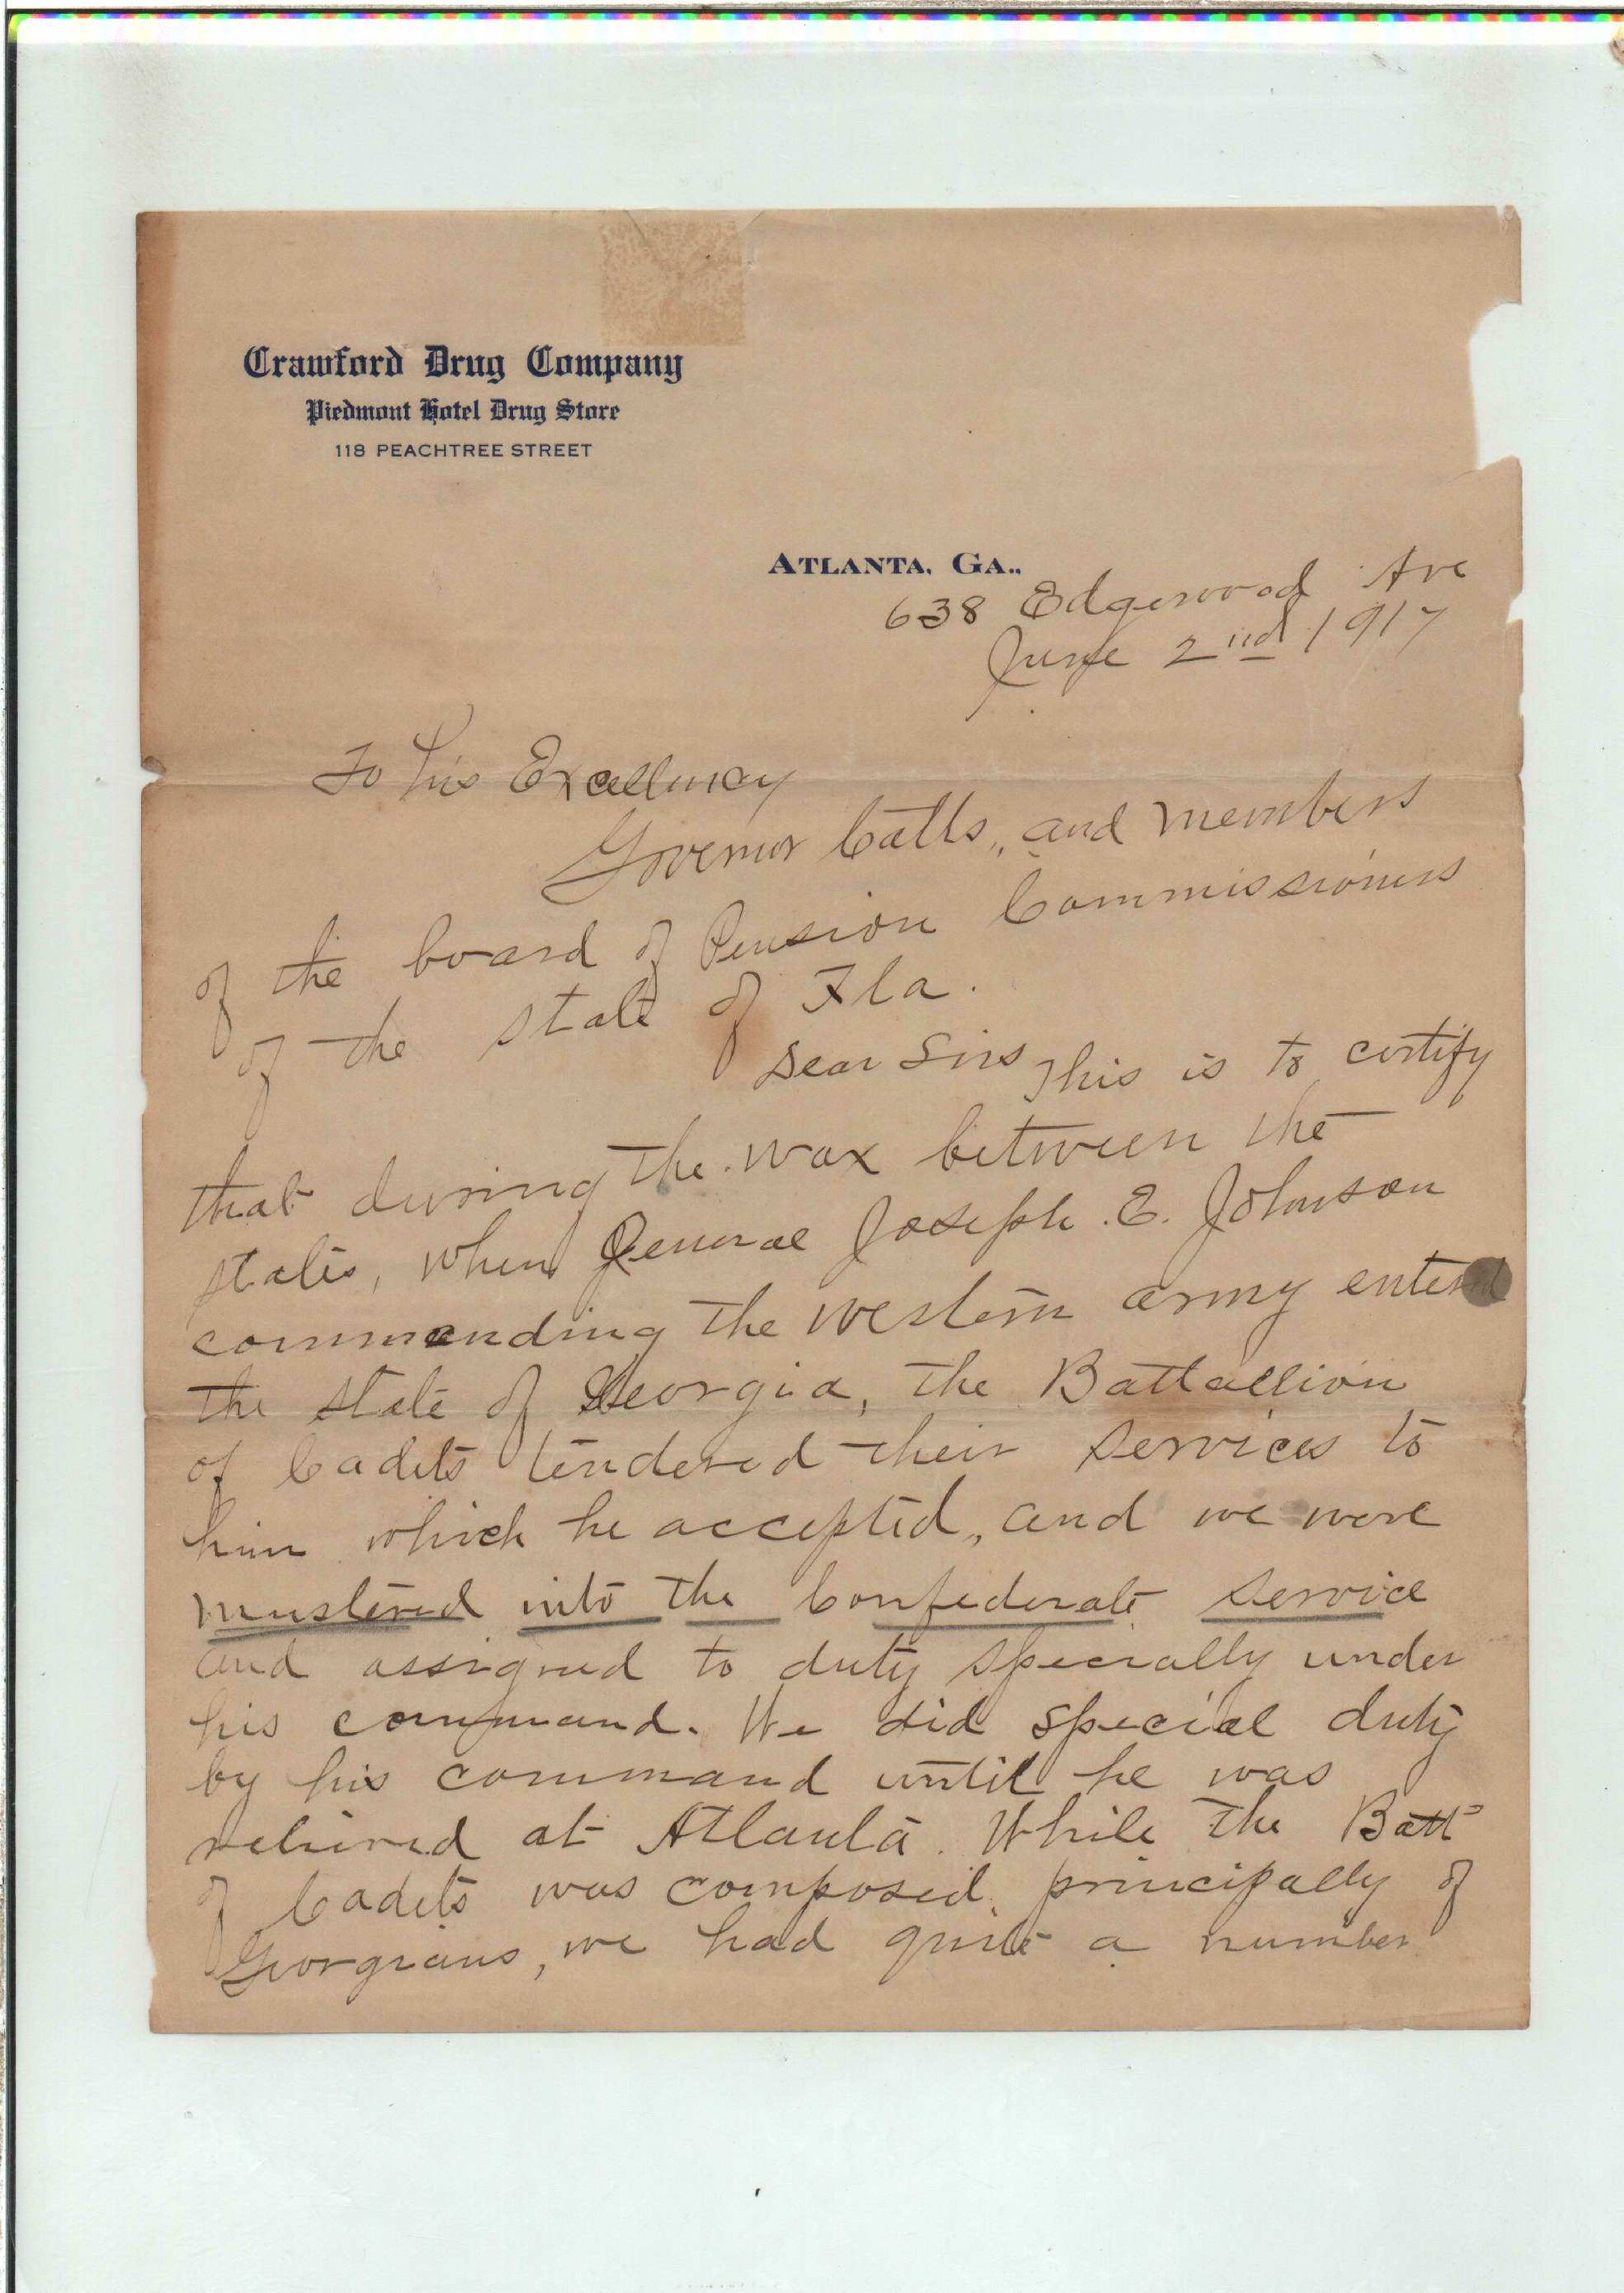 Crawford Drug Company
Piedmont Hotel Drug Store
118 PEACHTREE STREET
ATLANTA, GA.,
638 Edgewood Ave
June 2nd 1917
To his Excellency
Governor Catts, and members
of the board of Pension Commissioners
of the state of Fla.
Dear Sirs This is to certify
that during the war between the
states, when General Joseph. E. Johnson
commanding the western army entered
the state of Georgia, the Battallion
of Cadets tendered their services to
him which he accepted, and we were
mustered into the Confederate service
and assigned to duty specially under
his command. We did special duty
by his command until he was
relieved at Atlanta. While the Batt
of Cadets was composed principally of
Georgians, we had quite a number